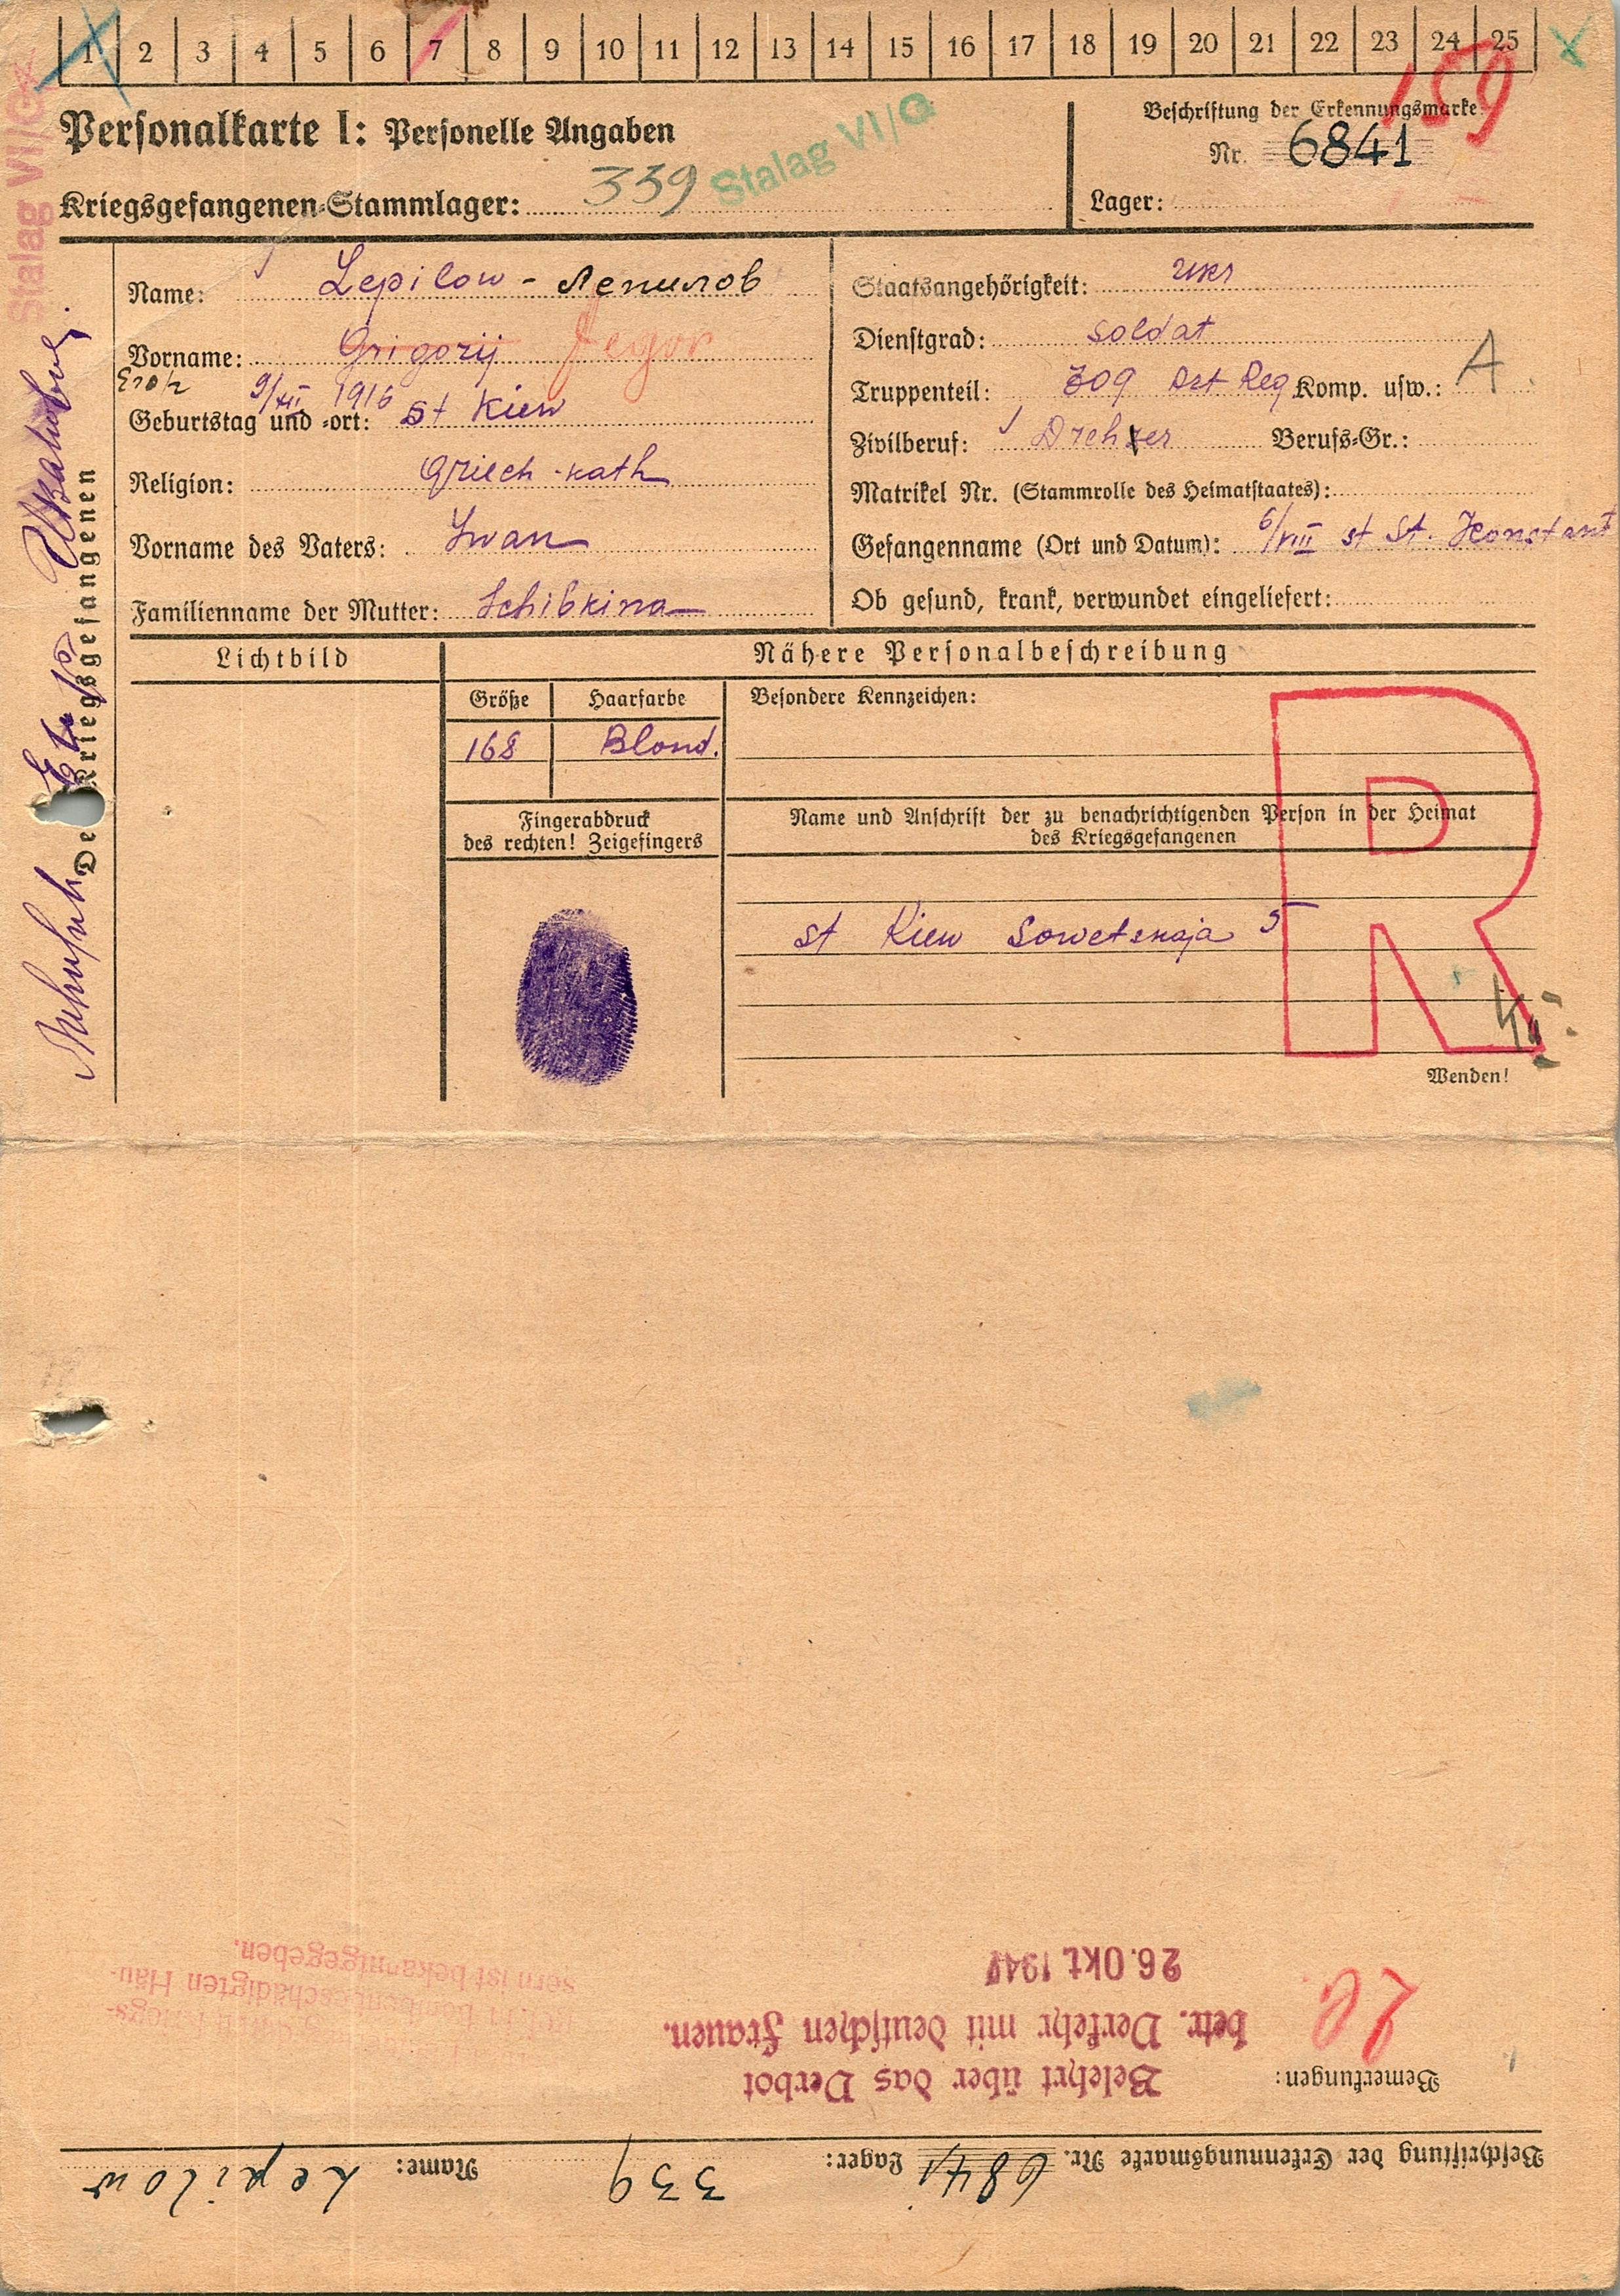 1 2 3 4 5 6 7 8 9 10 11 12 13 14 15 16 17 18 19 20 21 22 23 24 25
159
Personalkarte I: Personelle Angaben
Beschriftung der Erkennungsmarke
Nr. 6841
Kriegsgefangenen-Stammlager: 339 Stalag VI/G
Lager:
Stalag VI/G
Name: Lepilow - Лепилов
Staatsangehörigkeit:
Vorname: Grigorij Jegor
Dienstgrad: Soldat
Truppenteil: 309 Art Reg Komp. usw.: A
Geburtstag und -ort: 9/XII 1916 st Kiew
Zivilberuf: Dreher Berufs-Gr.:
Religion: Griech-kath
Matrikel Nr. (Stammrolle des Heimatstaates):
Vorname des Vaters: Iwan
Gefangennahme (Ort und Datum): 6/VIII st St. Konstant
Familienname der Mutter: Schibkina
Ob gesund, krank, verwundet eingeliefert:
Des Kriegsgefangenen
Lichtbild
Nähere Personalbeschreibung
Größe Haarfarbe Besondere Kennzeichen:
168 Blond.
Fingerabdruck
des rechten! Zeigefingers
Name und Anschrift der zu benachrichtigenden Person in der Heimat
des Kriegsgefangenen
R
st Kiew Sowetskaja 5
Wenden!
Beschriftung der Erkennungsmarke Nr. 6841 Lager: 339 Name: Lepilow
Bemerkungen:
Belehrt über das Verbot
betr. Verkehr mit deutschen Frauen.
26. Okt 194
bombenbeschädigten Häu-
sern ist bekanntgegeben.